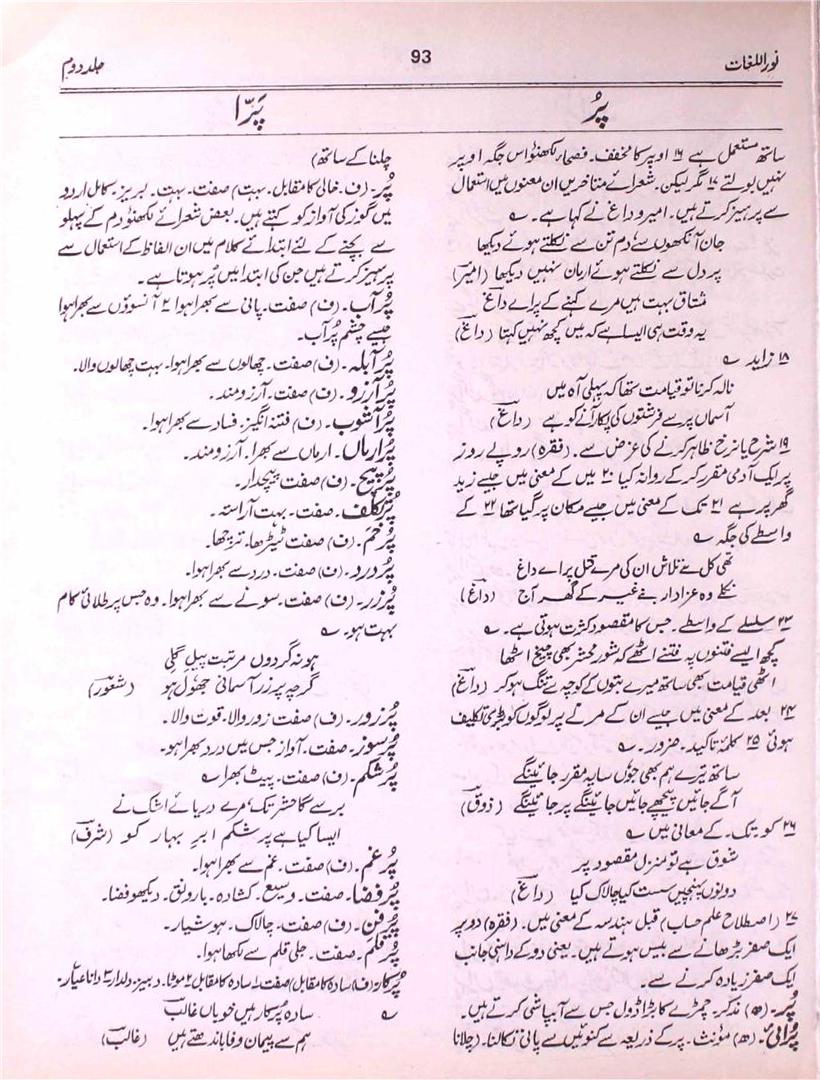 نور اللغات
93
جلد دوم
پُر
پَرّا
ساتھ مستعمل ہے ۱۶ اوپر کا مخفف۔ فصحاء لکھنؤ اس جگہ اوپر
نہیں بولتے ۱۷ مگر لیکن۔ شعرائے متاخرین ان معنوں میں استعمال
سے پرہیز کرتے ہیں۔ امیر و داغ نے کہا ہے۔ ؎
جان آنکھوں سے دم تن سے نکلتے ہوئے دیکھا
پر دل سے نکلتے ہوئے ارماں نہیں دیکھا (امیر)
مشتاق بہت ہیں مرے کہنے کے پر اے داغ
یہ وقت ہی ایسا ہے کہ میں کچھ نہیں کہتا (داغ)
۱۸ زاید ؎
نالہ کرنا تو قیامت تھا کہ پہلی آہ میں
آسماں پر سے فرشتوں کی پکار آنے کو ہے (داغ)
۱۹ شرح یا نرخ ظاہر کرنے کی غرض سے۔ (فقرہ) روپے روز
پر ایک آدمی مقرر کر کے روانہ کیا ۲۰ میں کے معنی میں جیسے زید
گھر پر ہے ۲۱ تک کے معنی میں جیسے مکان پر گیا تھا ۲۲ کے
واسطے کی جگہ ؎
تھی کل سے تلاش ان کی مرے قتل پر اے داغ
نکلے وہ عزادار بنے غیر کے گھر آج (داغ)
۲۳ سلسلے کے واسطے۔ جس کا مقصود کثرت ہوتی ہے۔ ؎
کچھ ایسے فتنوں پہ فتنے اٹھے کہ شور محشر بھی چیخ اٹھا
اٹھی قیامت بھی ساتھ میرے بتوں کے کوچے سے تنگ ہو کر (داغ)
۲۴ بعد کے معنی میں جیسے ان کے مرتے پر لوگوں کو بڑی تکلیف
ہوئی ۲۵ کلمۂ تاکید۔ ضرور۔ ؎
ساتھ تیرے ہم بھی جوں سایہ مقرر جائینگے
آگے جائیں پیچھے جائیں جائینگے پر جائینگے (ذوق)
۲۶ کو۔ تک۔ کے معانی میں ؎
شوق ہے تو منزل مقصود پر
دونوں پہنچیں سست کیا چالاک کیا (داغ)
۲۷ (اصطلاح علم حساب) قبل ہندسہ کے معنی میں۔ (فقرہ) دو پر
ایک صفر بڑھانے سے بیس ہوتے ہیں۔ یعنی دو کے داہنی جانب
ایک صفر زیادہ کرنے سے۔
پُر۔ (ھ) مذکر۔ چمڑے کا بڑا ڈول جس سے آبپاشی کرتے ہیں۔
پُرائی۔ (ھ) مؤنث۔ پر کے ذریعہ سے کنوئیں سے پانی نکالنا۔ (چلانا
چلنا کے ساتھ)
پُر۔ (ف۔ خالی کا مقابل۔ بہت) صفت۔ بہت۔ لبریز۔ کامل اردو
میں گوز کی آواز کو کہتے ہیں۔ بعض شعرائے لکھنؤ ذم کے پہلو
سے بچنے کے لئے ابتدائے کلام میں ان الفاظ کے استعمال سے
پرہیز کرتے ہیں جن کی ابتدا میں پُر ہوتا ہے۔
پُر آب۔ (ف) صفت۔ پانی سے بھرا ہوا ۲ آنسوؤں سے بھرا ہوا
جیسے چشم پُر آب۔
پُر آبلہ۔ (ف) صفت۔ چھالوں سے بھرا ہوا۔ بہت چھالوں والا۔
پُر آرزو۔ (ف) صفت۔ آرزومند۔
پُر آشوب۔ (ف) فتنہ انگیز۔ فساد سے بھرا ہوا۔
پُر ارماں۔ ارماں سے بھرا۔ آرزومند۔
پُر پیچ۔ (ف) صفت پیچدار۔
پُر تکلف۔ صفت۔ بہت آراستہ۔
پُر خم۔ (ف) صفت ٹیڑھا۔ ترچھا۔
پُر درد۔ (ف) صفت۔ درد سے بھرا ہوا۔
پُر زر۔ (ف) صفت۔ سونے سے بھرا ہوا۔ وہ جس پر طلائی کام
بہت ہو۔ ؎
ہو نہ گردوں مرتبت پیل گلی
گرچہ پر زر آسمانی جھول ہو (شعور)
پُر زور۔ (ف) صفت زور والا۔ قوت والا۔
پُر سوز۔ صفت۔ آواز جس میں درد بھرا ہو۔
پُر شکم۔ (ف) صفت۔ پیٹ بھرا ؎
برسے گا حشر تک، مرے دریائے اشک نے
ایسا کیا ہے پر شکم ابر بہار کو (شرف)
پُر غم۔ (ف) صفت۔ غم سے بھرا ہوا۔
پُر فضا۔ صفت۔ وسیع۔ کشادہ۔ بارونق۔ دیکھو فضا۔
پُر فن۔ (ف) صفت۔ چالاک۔ ہوشیار۔
پُر قلم۔ صفت۔ جلی قلم سے لکھا ہوا۔
پُرکار۔ (ف) سادہ کا مقابل) صفت ۱ سادہ کا مقابل ۲ موٹا۔ دبیز۔ دلدار ۳ دانا عیار۔
؎ سادہ پُرکار ہیں خوباں غالب
ہم سے پیمان وفا باندھتے ہیں (غالب)